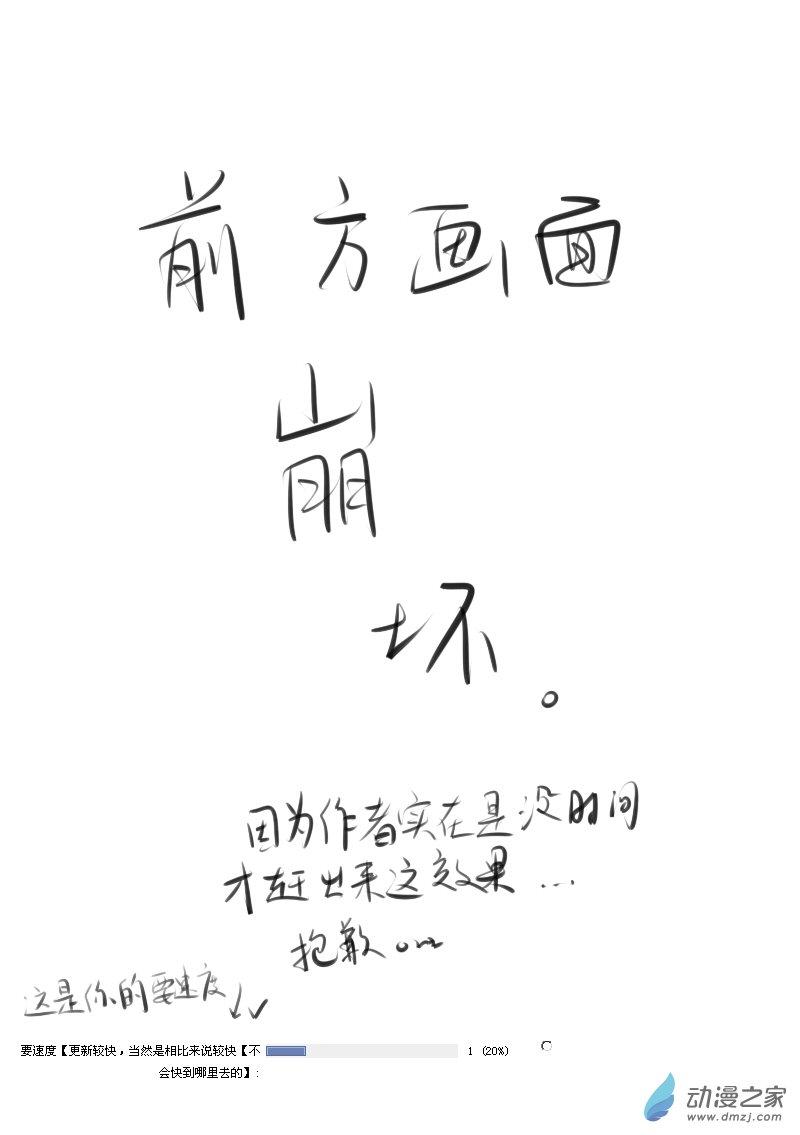 前方画面
崩
坏。
因为作者实在是没时间
才赶出来这效果...
抱歉。...
这是你的要速度↓✓
要速度【更新较快，当然是相比来说较快【不 1 (20%)
会快到哪里去的】:
动漫之家
www.dmzj.com